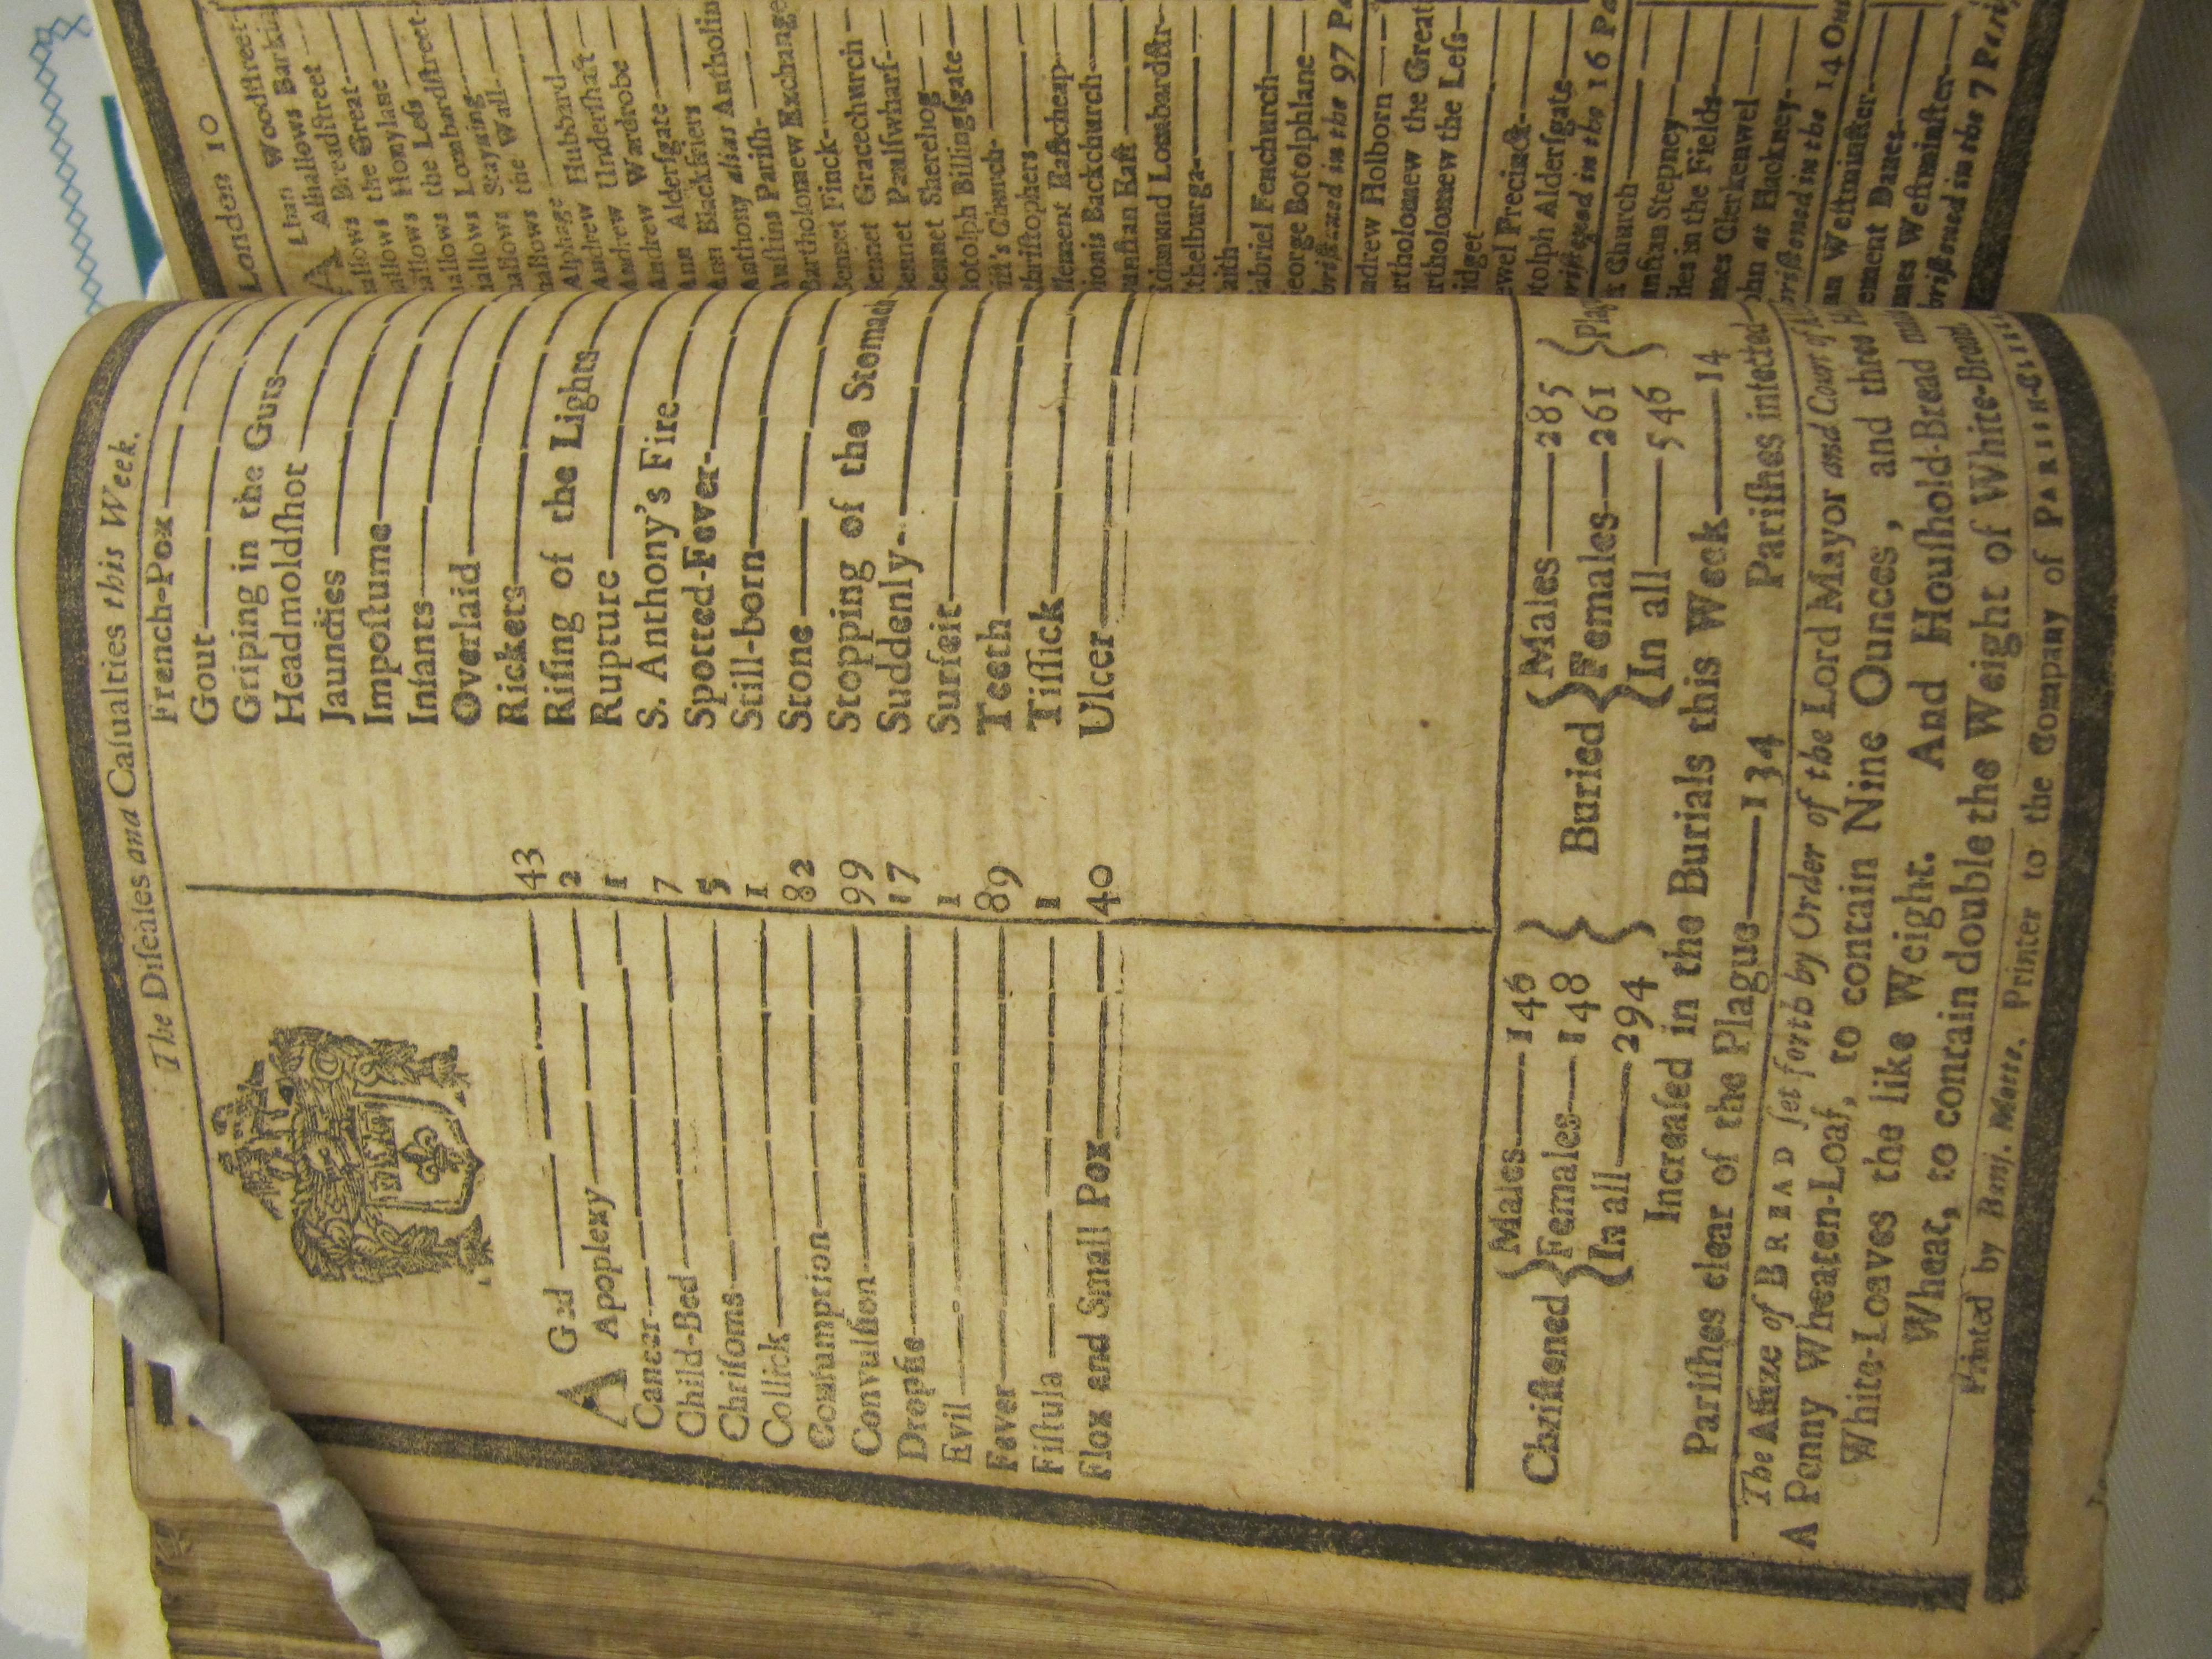 The Diſeaſes and Caſualties this Week.
AGed 43
Apoplexy 2
Cancer 1
Child-Bed 7
Chriſoms 5
Collick 1
Conſumption 82
Convulſion 99
Dropſie 17
Evil 1
Fever 89
Fiſtula 1
Flox and Small Pox 40
French-Pox
Gout
Griping in the Guts
Headmoldſhot
Jaundies
Impoſtume
Infants
Overlaid
Rickets
Riſing of the Lights
Rupture
S. Anthony's Fire
Spotted-Fever
Still-born
Stone
Stopping of the Stomach
Suddenly
Surfeit
Teeth
Tiſſick
Ulcer
Chriſtned { Males 146 Females 148 In all 294 } Buried { Males 285 Females 261 In all 546 }
Increaſed in the Burials this Week 14
Pariſhes clear of the Plague 134 Pariſhes infected
The Aſſize of BREAD ſet forth by Order of the Lord Mayor and Court of
A Penny Wheaten-Loaf, to contain Nine Ounces, and three
White-Loaves the like Weight. And Houſhold-Bread
Wheat, to contain double the Weight of White-Bread
Printed by Benj. Motte, Printer to the Company of PARISH-CLERKS
London 10
Woodſtreet
Alhallows Barkin
Alhallows Breadſtreet
the Great
Honylane
the Leſs
Lombardſtreet
Stayning
the Wall
Alphage
Andrew Hubbard
Andrew Underſhaft
Andrew Wardrobe
Ann Alderſgate
Ann Blackfriers
Anthony alias Antholin
Auſtins Pariſh
Bartholomew Exchange
Bennet Finck
Bennet Gracechurch
Bennet Paulſwharf
Bennet Sherehog
Botolph Billingſgate
Church
Chriſtophers
Clement Eaſtcheap
Dionis Backchurch
Dunſtan Eaſt
Edmund Lombardſtr
Ethelburga
Faith
Gabriel Fenchurch
George Botolphlane
in the 97
Andrew Holborn
Bartholomew the Great
Bartholomew the Leſs
Bridget
Precinct
Botolph Alderſgate
in the 16
Church
Dunſtan Stepney
Giles in the Fields
James Clerkenwel
John at Hackney
in the 14
Weſtminſter
Clement Danes
James Weſtminſter
in the 7